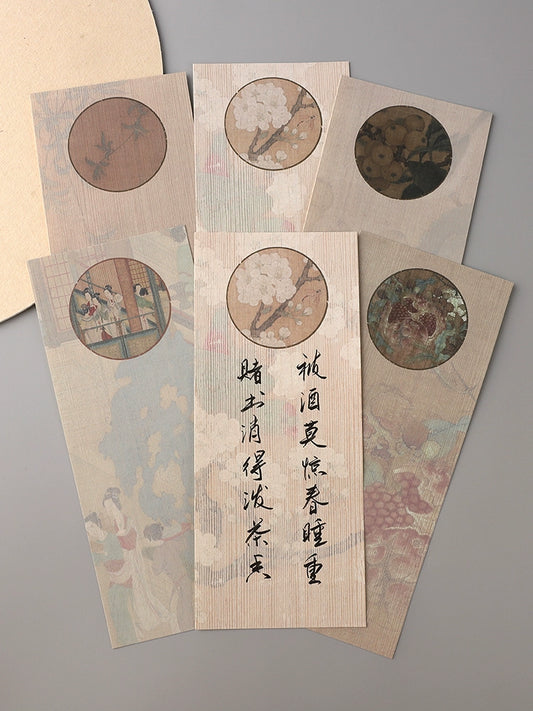 被酒莫惊春睡重
賭书消得泼茶香